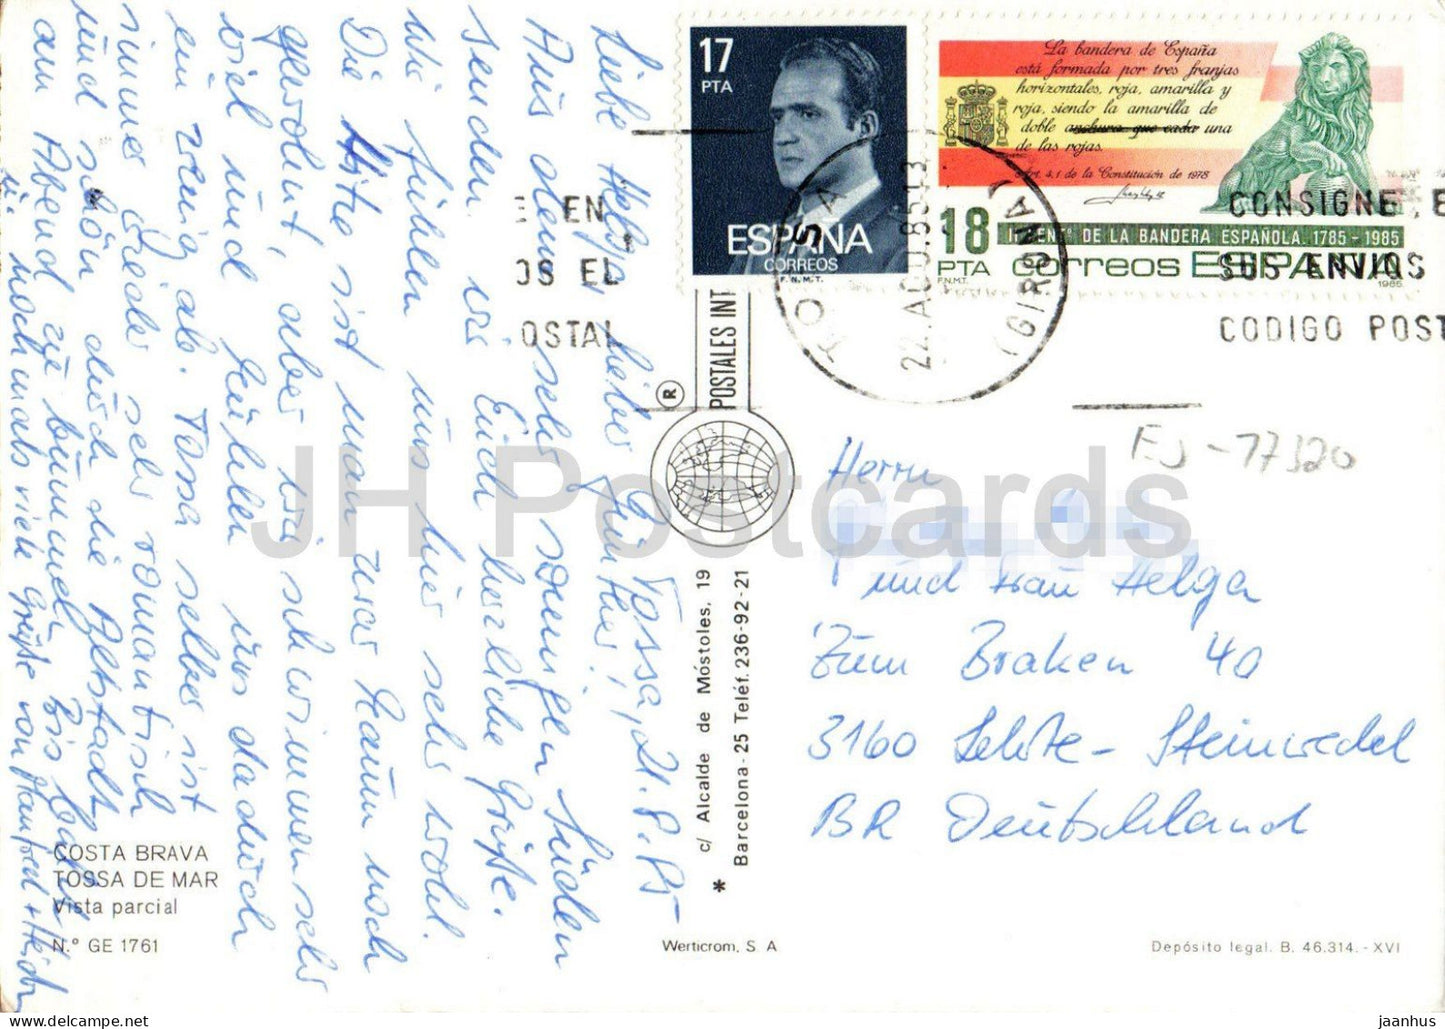 Tossa, 21.8.85
Liebe Helga, lieber Günther,
Aus dem sehr sonnigen Süden
senden wir Euch herzliche Grüße.
Wir fühlen uns hier sehr wohl.
Die Hitze ist man zwar kaum noch
gewohnt, aber wir schwimmen sehr
viel und kühlen uns dadurch
ein wenig ab. Tossa selber ist
immer wieder sehr romantisch
und schön durch die Altstadt
am Abend zu bummeln. Bis
nochmals viele Grüße von Manfred + Heidi
COSTA BRAVA
TOSSA DE MAR
Vista parcial
N.º GE 1761
17
PTA
ESPAÑA
CORREOS
F.N.M.T.
La bandera de España
está formada por tres franjas
horizontales, roja, amarilla y
roja, siendo la amarilla de
doble anchura que cada una
de las rojas.
Art. 4,1 de la Constitución de 1978
18
PTA
II CENTº DE LA BANDERA ESPAÑOLA. 1785-1985
correos ESPAÑA
F.N.M.T.
1985
E EN
OS EL
OSTAL
TOSSA
22.AGO.85-13
(GIRONA)
CONSIGNE, E
SUS ENVIOS,
CODIGO POST
® POSTALES INT
c/ Alcalde de Móstoles, 19
Barcelona - 25 Teléf. 236-92-21
*
Werticrom, S A
FJ-77320
Herrn
und Frau Helga
Zum Braken 40
3160 Lehrte-Steinwedel
BR Deutschland
Depósito legal. B. 46.314.-XVI
JH Postcards
https://www.ansichtskartenversand.com
jaanhus